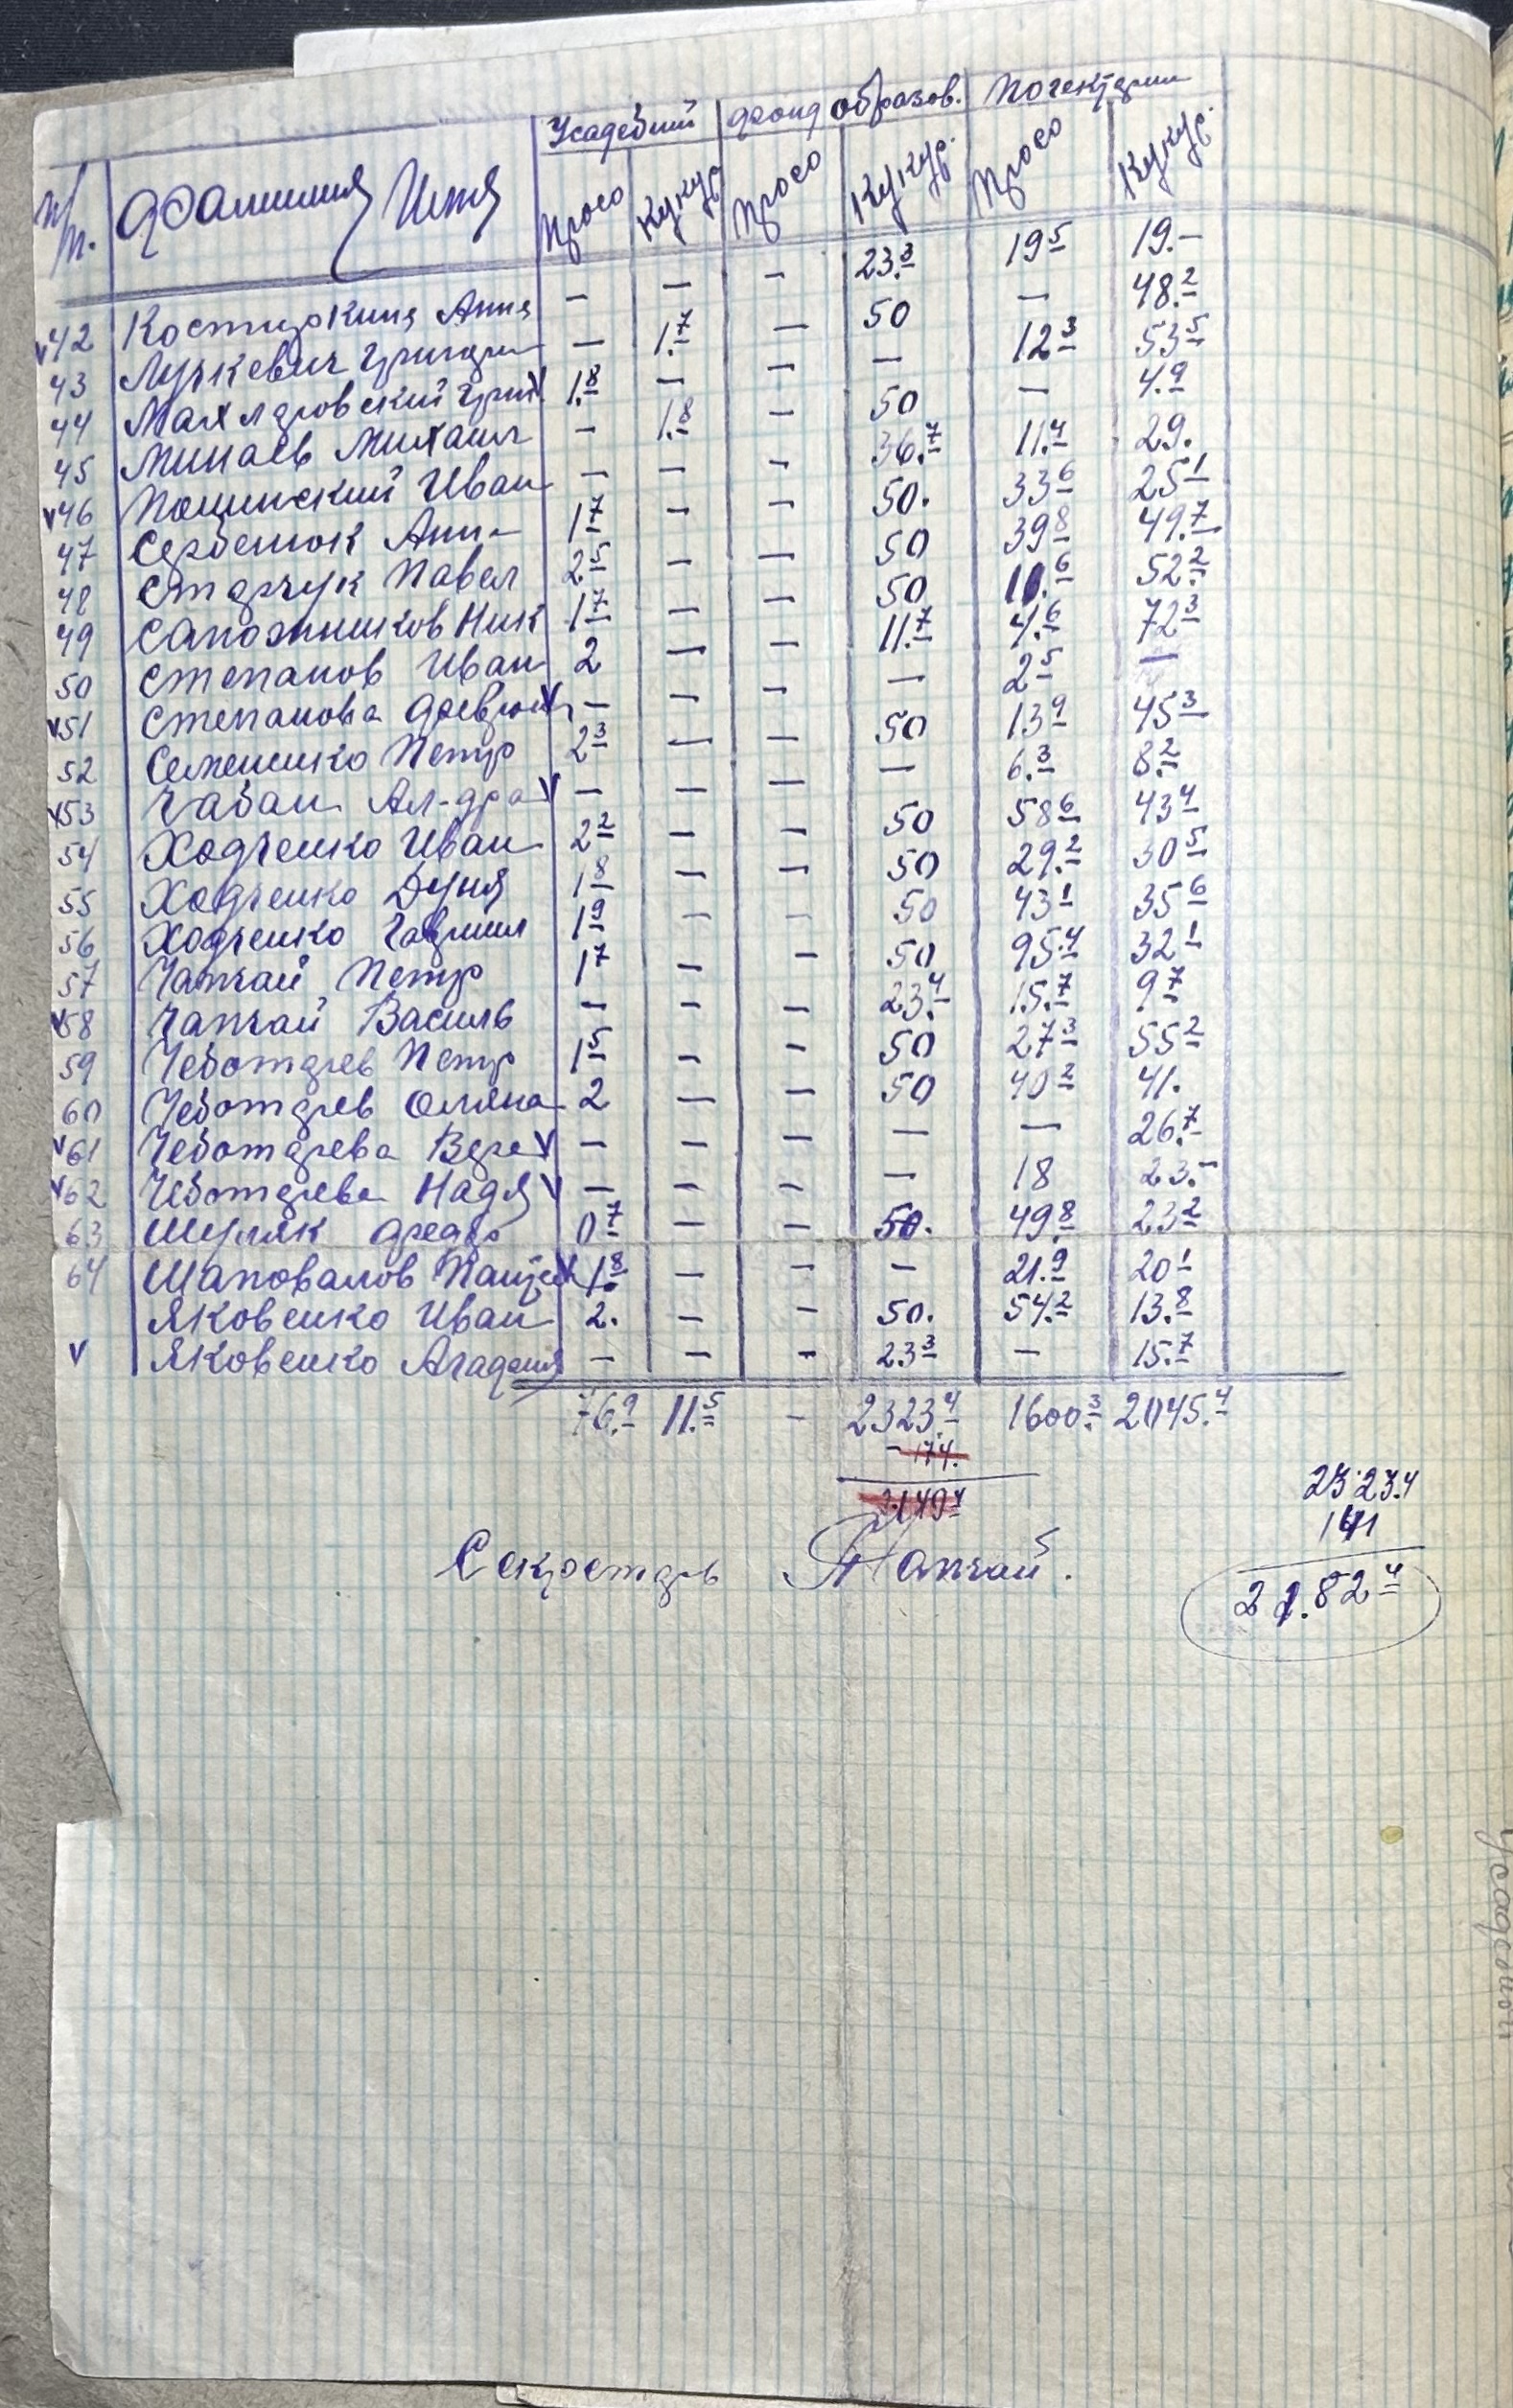 Усадебний фонд образов. Погектарии
№ п. Фамилия Имя Просо Кукур Просо Кукур. Просо Кукур.
v42 Костюркина Анна — — — 23.3 19 5 19.—
43 Лучкевич Григори — 1.7 — 50 — 48.2
44 Махляровский Григ v 1.8 — — — 12 3 53 5
45 Минаев Михаил — 1.8 — 50 — 4.9
v46 Иван — — — 36.7 11.4 29.
47 Сербенюк Анн 1 7 — — 50. 33 6 25 1
48 Стдрчук Павел 2.5 — — 50 39 8 49.7
49 Сапожников Ник 1 7 — — 50 10.6 52.2
50 Степанов Иван 2 — — 11.7 4.6 72 3
v51 Степанова v — — — — 2 5 —
52 Семенишко Петр 2 3 — — 50 13 9 45 3
v53 Чабан Ал-дра v — — — — 6.3 8.2
54 Ходченко Иван 2 2 — — 50 58 6 43 4
55 Ходченко Дуня 1 8 — — 50 29.2 30 5
56 Ходченко Гаврил 1 9 — — 50 43 1 35 6
57 Чапчай Петр 1 7 — — 50 95.4 32 1
v58 Чапчай Василь — — — 23.4 15.7 9 7
59 Чеботарев Петр 1 5 — — 50 27 3 55 2
60 Чеботарев Оляна 2 — — 50 40 2 41.
v61 Чеботарева Вера v — — — — — 26.7
v62 Чеботарева Надя v — — — — 18 23.—
63 Шуляк Федор 0 7 — — 50. 49.8 23 2
64 Шаповалов v 1.8 — — — 21.9 20 1
Яковенко Иван 2. — — 50. 54.2 13.8
v Яковенко Агафия — — — 23 3 — 15.7
76.9 11.5 — 2323.4 1600.3 2045.4
- 174.
2149 4
2323.4
141
2182 4
Секретарь Чапчай.